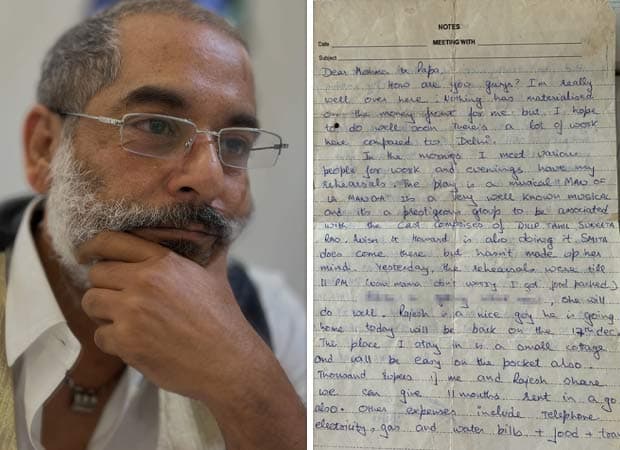 NOTES
Date
MEETING WITH
Subject
Dear Mamma & Papa,
How are you guys? I'm really
well over here. Nothing has materialised
on the money front for me but I hope
to do well soon there's a lot of work
here compared to Delhi.
In the mornings I meet various
people for work and evenings have my
rehearsals. The play is a musical "MAN OF
LA MANCHA" It's a very well known musical
and it's a prestigious group to be associated
with the cast comprises of DILIP TAHIL SUCHETA
RAO. & Howard is also doing it. SMITA
does come there but hasn't made up her
mind. Yesterday, the rehearsals were till
11 PM (Mama don't worry I got food packed)
, She will
do well. Rajesh is a nice guy he is going
home today will be back on the 17th dec.
The place I stay in is a small cottage
and will be easy on the pocket also.
Thousand Rupees if me and Rajesh share
we can give 11 months rent in a go
also. Other expenses include telephone
electricity, gas and water bills + food +